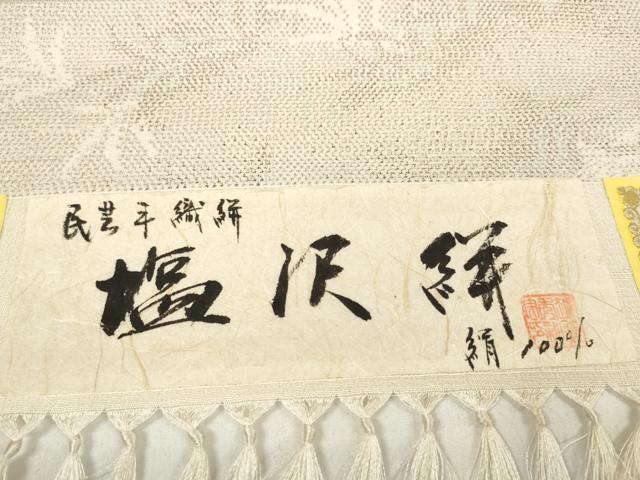 民芸手織絣
塩沢絣
絹100%